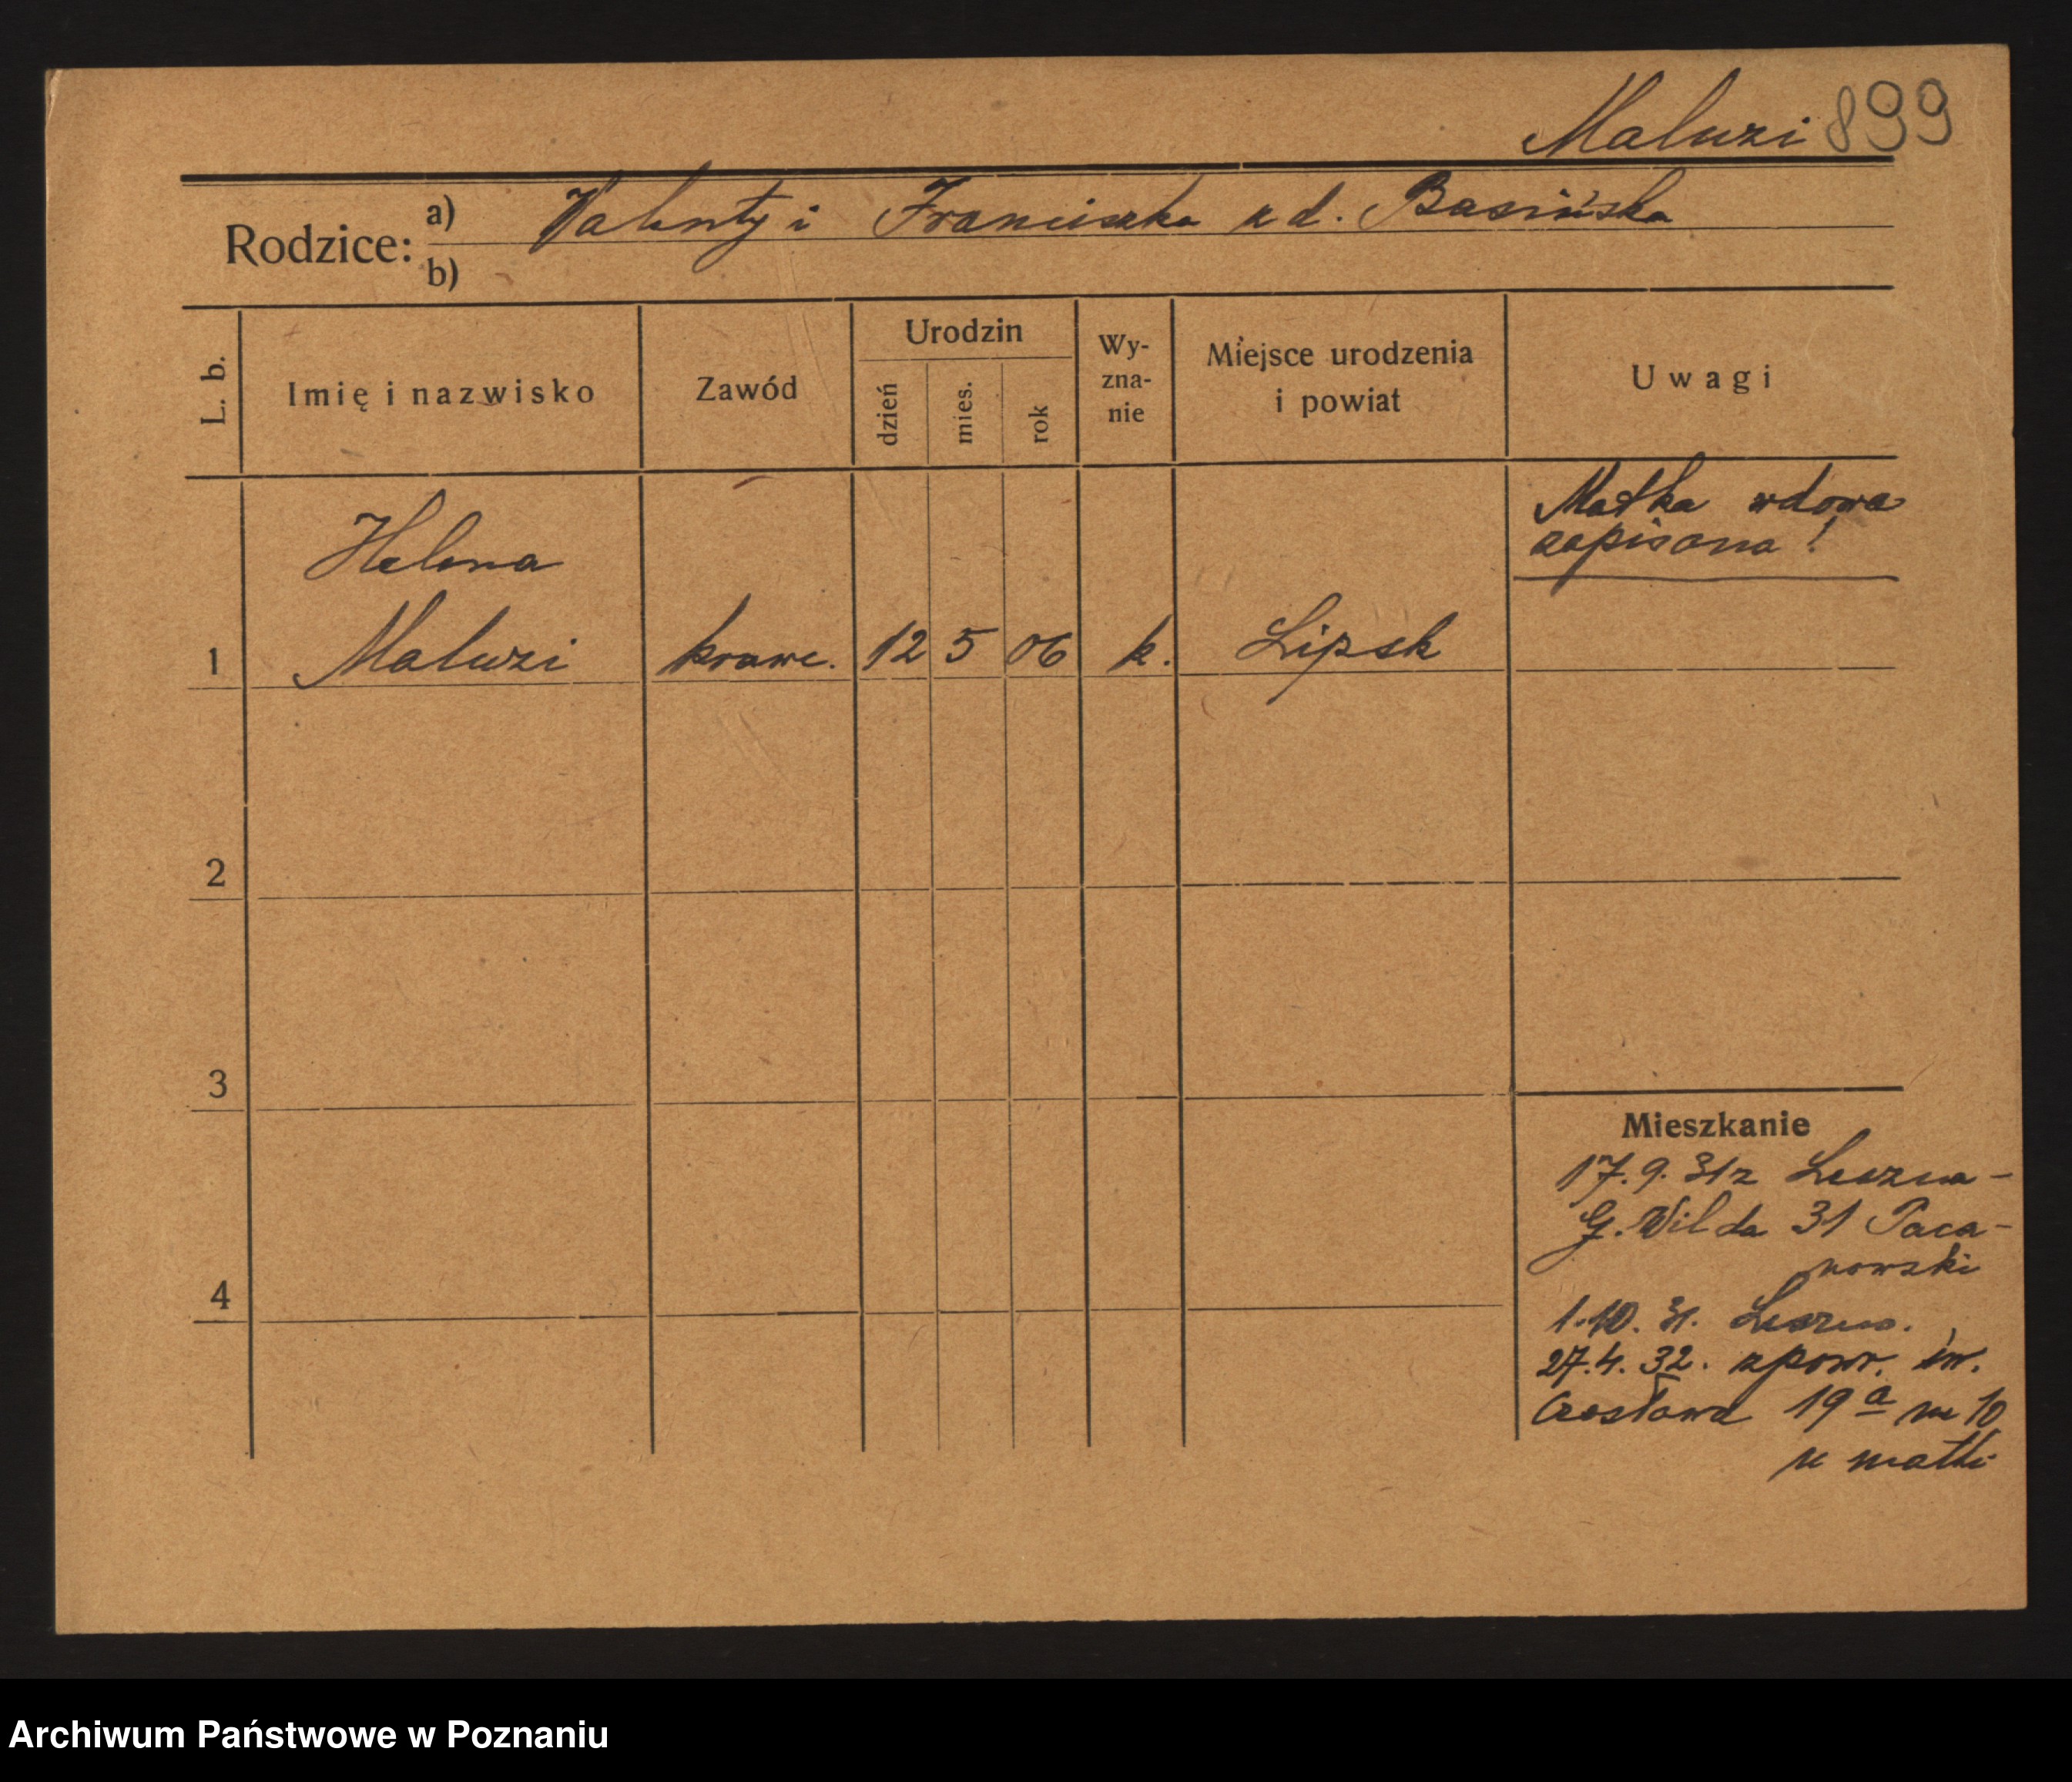 Maluzi 899
Rodzice: a) Valenty i Franciszka z d. Basińska
b)
L. b.
Imię i nazwisko
Zawód
Urodzin
dzień
mies.
rok
Wy-
zna-
nie
Miejsce urodzenia
i powiat
Uwagi
Matka wdowa
zapisana!
Helena
1 Maluzi krawc. 12 5 06 k. Lipsk
2
3
4
Mieszkanie
17.9.31 z Leszna -
G. Wilda 31 Paca-
nowski
1.10.31. Leszno.
27.4.32. zpowr. św.
Czesława 19a m 10
u matki
Archiwum Państwowe w Poznaniu